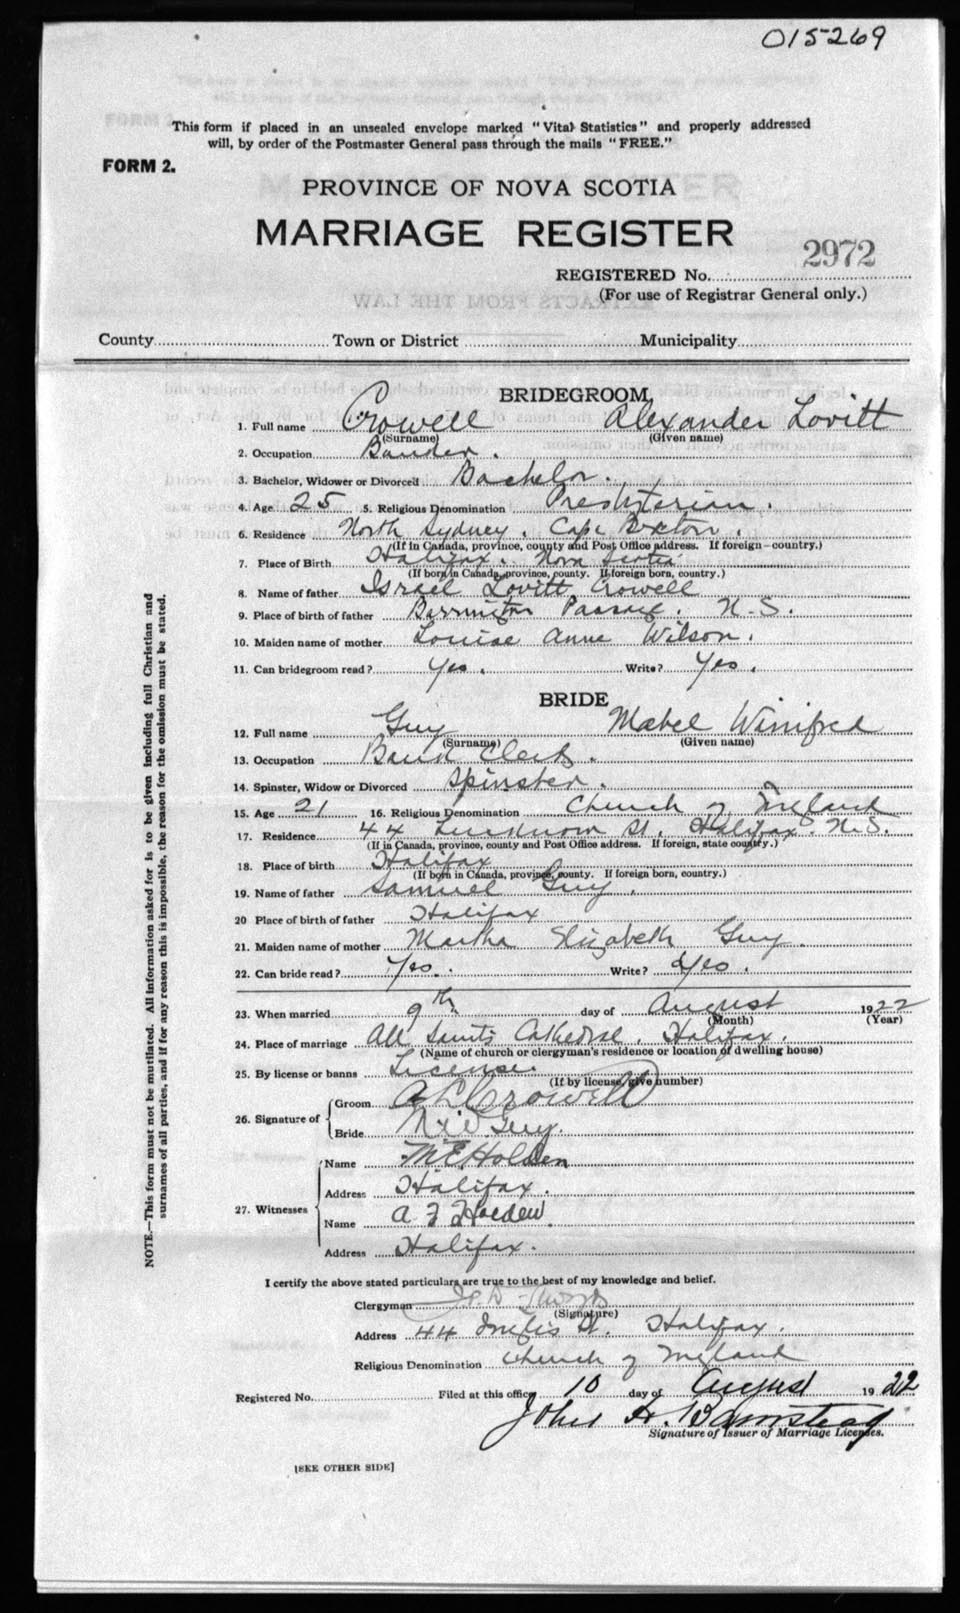 015269
This form if placed in an unsealed envelope marked "Vital Statistics" and properly addressed
will, by order of the Postmaster General pass through the mails "FREE."
FORM 2.
PROVINCE OF NOVA SCOTIA
MARRIAGE REGISTER
2972
REGISTERED No.
(For use of Registrar General only.)
County Town or District Municipality
BRIDEGROOM,
1. Full name Crowell Alexander Lovitt
(Surname) (Given name)
2. Occupation Banker.
3. Bachelor, Widower or Divorced Bachelor.
4. Age 25 5. Religious Denomination Presbyterian.
6. Residence North Sydney. Cape Breton.
(If in Canada, province, county and Post Office address. If foreign—country.)
7. Place of Birth Halifax. Nova Scotia
(If born in Canada, province, county. If foreign born, country.)
8. Name of father Israel Lovitt Crowell
9. Place of birth of father Barrington Passage. N.S.
10. Maiden name of mother Louise Anne Wilson.
11. Can bridegroom read? Yes. Write? Yes.
BRIDE
12. Full name Guy Mabel Winifred
(Surname) (Given name)
13. Occupation Bank Clerk.
14. Spinster, Widow or Divorced Spinster.
15. Age 21 16. Religious Denomination Church of England
17. Residence 44 Lucknow St. Halifax. N.S.
(If in Canada, province, county and Post Office address. If foreign, state country.)
18. Place of birth Halifax
(If born in Canada, province, county. If foreign born, country.)
19. Name of father Samuel Guy.
20 Place of birth of father Halifax
21. Maiden name of mother Martha Elizabeth Guy.
22. Can bride read? Yes. Write? Yes.
23. When married 9th day of August 1922
(Month) (Year)
24. Place of marriage All Saints Cathedral. Halifax.
(Name of church or clergyman's residence or location of dwelling house)
25. By license or banns License.
(If by license, give number)
26. Signature of
Groom A L Crowell
Bride M W Guy.
27. Witnesses
Name M E Holden
Address Halifax.
Name A F Holden.
Address Halifax.
I certify the above stated particulars are true to the best of my knowledge and belief.
Clergyman
(Signature)
Address 44 Inglis St. Halifax.
Religious Denomination Church of England
Registered No. Filed at this office 10 day of August 1922
John H. Barnstead
Signature of Issuer of Marriage Licenses.
[SEE OTHER SIDE]
NOTE.—This form must not be mutilated. All information asked for is to be given including full Christian and
surnames of all parties, and if for any reason this is impossible, the reason for the omission must be stated.